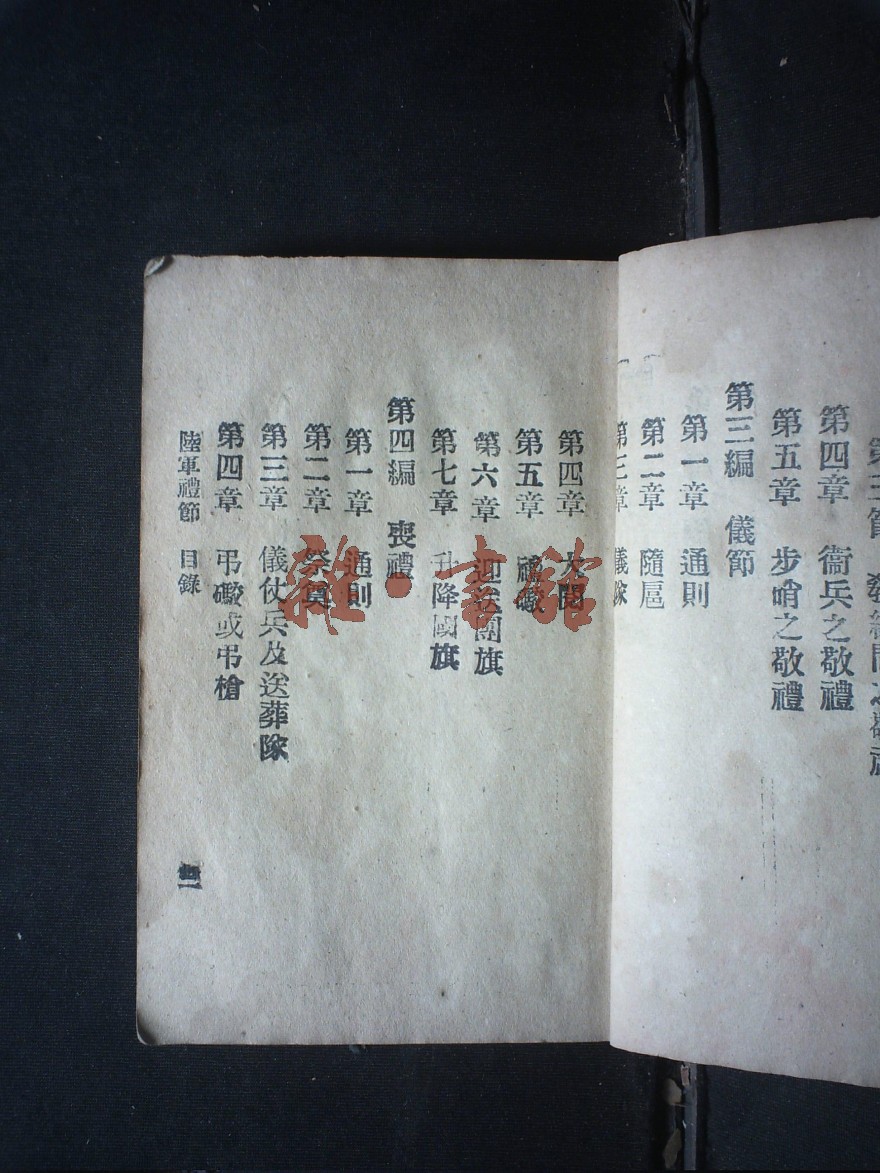 第四章 衞兵之敬禮
第五章 步哨之敬禮
第三編 儀節
第一章 通則
第二章 隨扈
第三章 儀隊
第四章 大閱
第五章 禮礮
第六章 迎送團旗
第七章 升降國旗
第四編 喪禮
第一章 通則
第二章 祭奠
第三章 儀仗兵及送葬隊
第四章 弔礮或弔槍
陸軍禮節 目錄
雜·書館